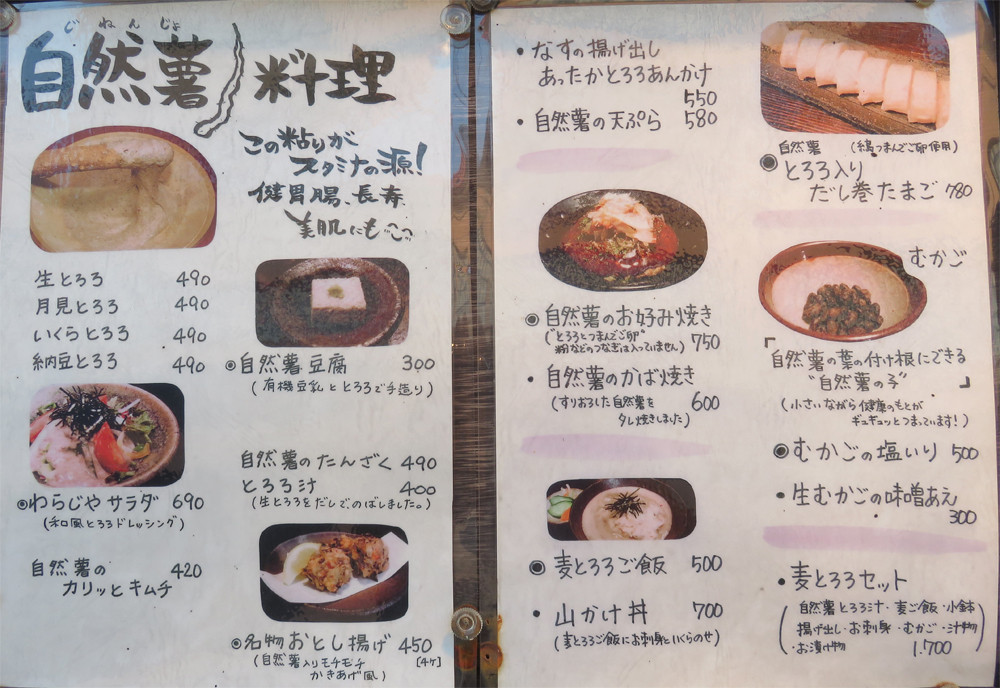 じねんじょ
自然薯料理
この粘りが
スタミナの源!
健胃腸、長寿
美肌にも
生とろろ 490
月見とろろ 490
いくらとろろ 490
納豆とろろ 490
◉自然薯豆腐 300
(有機豆乳ととろろで手造り)
◉わらじやサラダ 690
(和風とろろドレッシング)
自然薯の
カリッとキムチ 420
自然薯のたんざく 490
とろろ汁 400
(生とろろをだしでのばしました。)
◉名物おとし揚げ 450
(自然薯入りモチモチ [4ケ]
かきあげ風)
・なすの揚げ出し
あったかとろろあんかけ
550
・自然薯の天ぷら 580
◉自然薯のお好み焼き
("とろろとつまんでご卵"
粉などのつなぎは入っていません) 750
・自然薯のかば焼き
(すりおろした自然薯を 600
タレ焼きしました)
◉麦とろろご飯 500
・山かけ丼 700
(麦とろろご飯にお刺身といくらのせ)
自然薯 (絹つまんでご卵使用)
◉とろろ入り
だし巻たまご 780
むかご
「自然薯の葉の付け根にできる
"自然薯の子"」
(小さいながら健康のもとが
ギュギュッとつまっています!)
◉むかごの塩いり 500
・生むかごの味噌あえ
300
・麦とろろセット
(自然薯とろろ汁・麦ご飯・小鉢
揚げ出し・お刺身・むかご・汁物
・お漬け物 1.700)